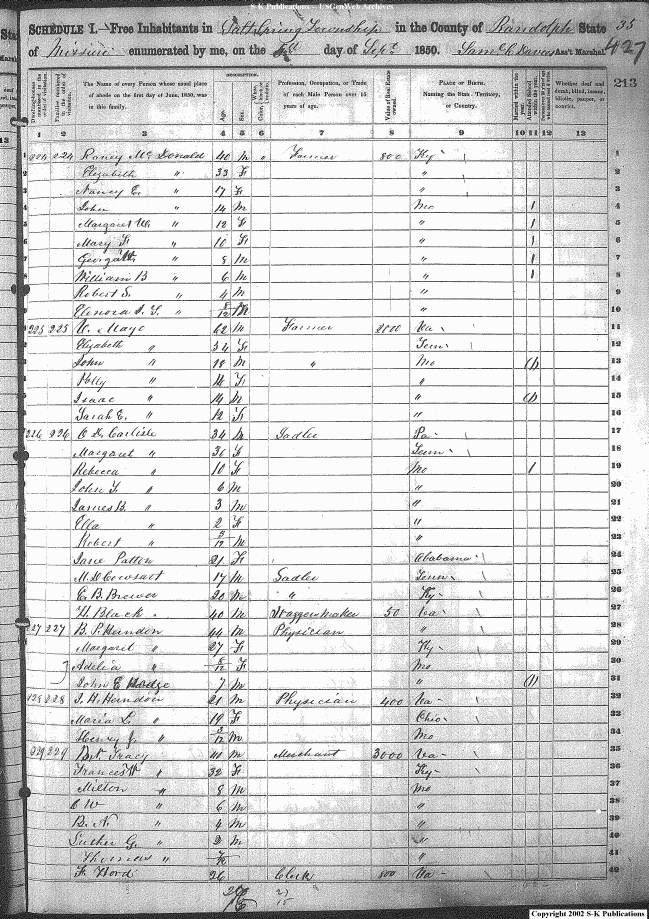 S-K Publications - USGenWeb Archives
SCHEDULE I.—Free Inhabitants in Salt Spring Township in the County of Randolph State 35
of Missouri enumerated by me, on the day of Sept. 1850. Saml C Davis Ass't Marshal. 427
213
DESCRIPTION.
The Name of every Person whose usual place of abode on the first day of June, 1850, was in this family.
Age.
Sex.
Profession, Occupation, or Trade of each Male Person over 15 years of age.
Value of Real Estate owned.
PLACE OF BIRTH. Naming the State, Territory, or Country.
Married within the year.
Whether deaf and dumb, blind, insane, idiotic, pauper, or convict.
1 2 3 4 5 6 7 8 9 10 11 12 13
224 224 Raney McDonald 40 M " Farmer 800 Ky 1
Elizabeth " 33 F " 2
Nancy E. " 17 F " 3
John " 14 M Mo 1 4
Margaret " 12 F " 1 5
Mary F " 10 F " 1 6
George " 8 M " 1 7
William B " 6 M " 1 8
Robert S. " 4 M " 9
Elenora " 8/12 " 10
225 225 Mayo 62 M Farmer 2000 Va 11
Elizabeth " 34 F Tenn 12
John " 18 M " Mo (1) 13
Polly " 16 F " 14
Isaac " 14 M " (1) 15
Sarah E. " 12 F " 16
226 226 Carlisle 34 M Sadler Pa 17
Margaret " F Tenn 18
Rebecca " 10 F Mo 1 19
John " 6 M " 20
James B. " 3 M " 21
Ella " 2 F " 22
Robert " /12 M " 23
Jane Patton 21 F Alabama 24
17 M Sadler Tenn 25
C. B. Brewer 20 M " Ky 26
H. Black 40 M Waggonmaker 50 Va 27
227 227 B. P. Herndon 44 M Physician " 28
Margaret " 27 F Ky 29
Adelia " 8/12 F Mo 30
John E Hodge 7 M " (1) 31
228 228 Herndon 21 M Physician 400 Va 32
Maria L. " 19 F Ohio 33
Henry J. " /12 M Mo 34
229 229 Tracy M Merchant 3000 Va 35
Frances " 32 F Ky 36
Milton " 8 M Mo 37
C W " 6 M " 38
B. N. " 4 M " 39
Luther G. " 2 M " 40
Thomas " " 41
F. Hord 26 Clerk 800 Va 42
Copyright 2002 S-K Publications